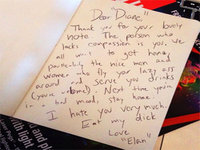 Dear "Diane,"
Thank you for your lovely
note. The person who
lacks compassion is you. We
all want to get home
particularly the nice men and
women who fly your lazy ass
around and serve you drinks
(you're welcome!) Next time you're
in a bad mood, stay home.
I hate you very much.
Eat my dick
Love
"Elan"